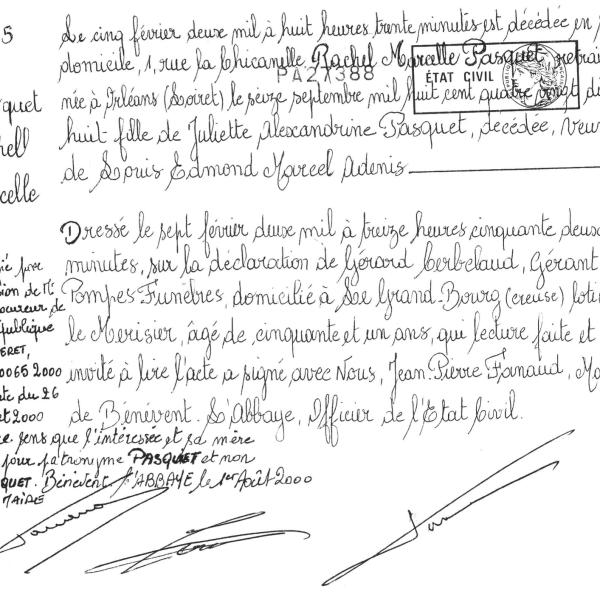 5
Le cinq février deux mil à huit heures trente minutes est décédée en
domicile, 1, rue la Chicanelle Rachel Marcelle Pasquet, retrai
PA27388
ÉTAT CIVIL
née à Orléans (Loiret) le seize septembre mil huit cent quatre vingt di
huit fille de Juliette Alexandrine Pasquet, décédée, Veuv
de Louis Edmond Marcel Adenis
squet
hell
rcelle
Dressé le sept février deux mil à treize heures cinquante deux
minutes, sur la déclaration de Gérard Cerbelaud, Gérant
Pompes Funèbres, domicilié à Le Grand-Bourg (creuse) loti
le Merisier, âgé de cinquante et un ans, qui lecture faite et
invité à lire l'acte a signé avec Nous, Jean-Pierre Farnaud, Ma
de Bénévent. L'Abbaye, Officier de l'Etat Civil.
ié par
sion de
ocureur de
épublique
ERET,
0065 2000
te du 26
et 2000
ce sens que l'intéressée et sa mère
pour patronyme PASQUET et non
QUET. Bénévent l'ABBAYE le 1er Août 2000
MAIRE